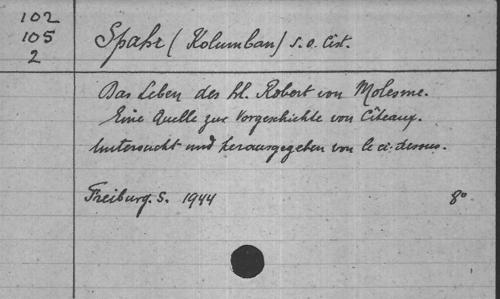 102
105
2
Spahr (Kolumban) S. O. Cist.
Das Leben des hl. Robert von Molesme.
Eine Quelle zur Vorgeschichte von Cîteaux.
Untersucht und herausgegeben von le ci-dessus.
Freiburg. S. 1944 8°